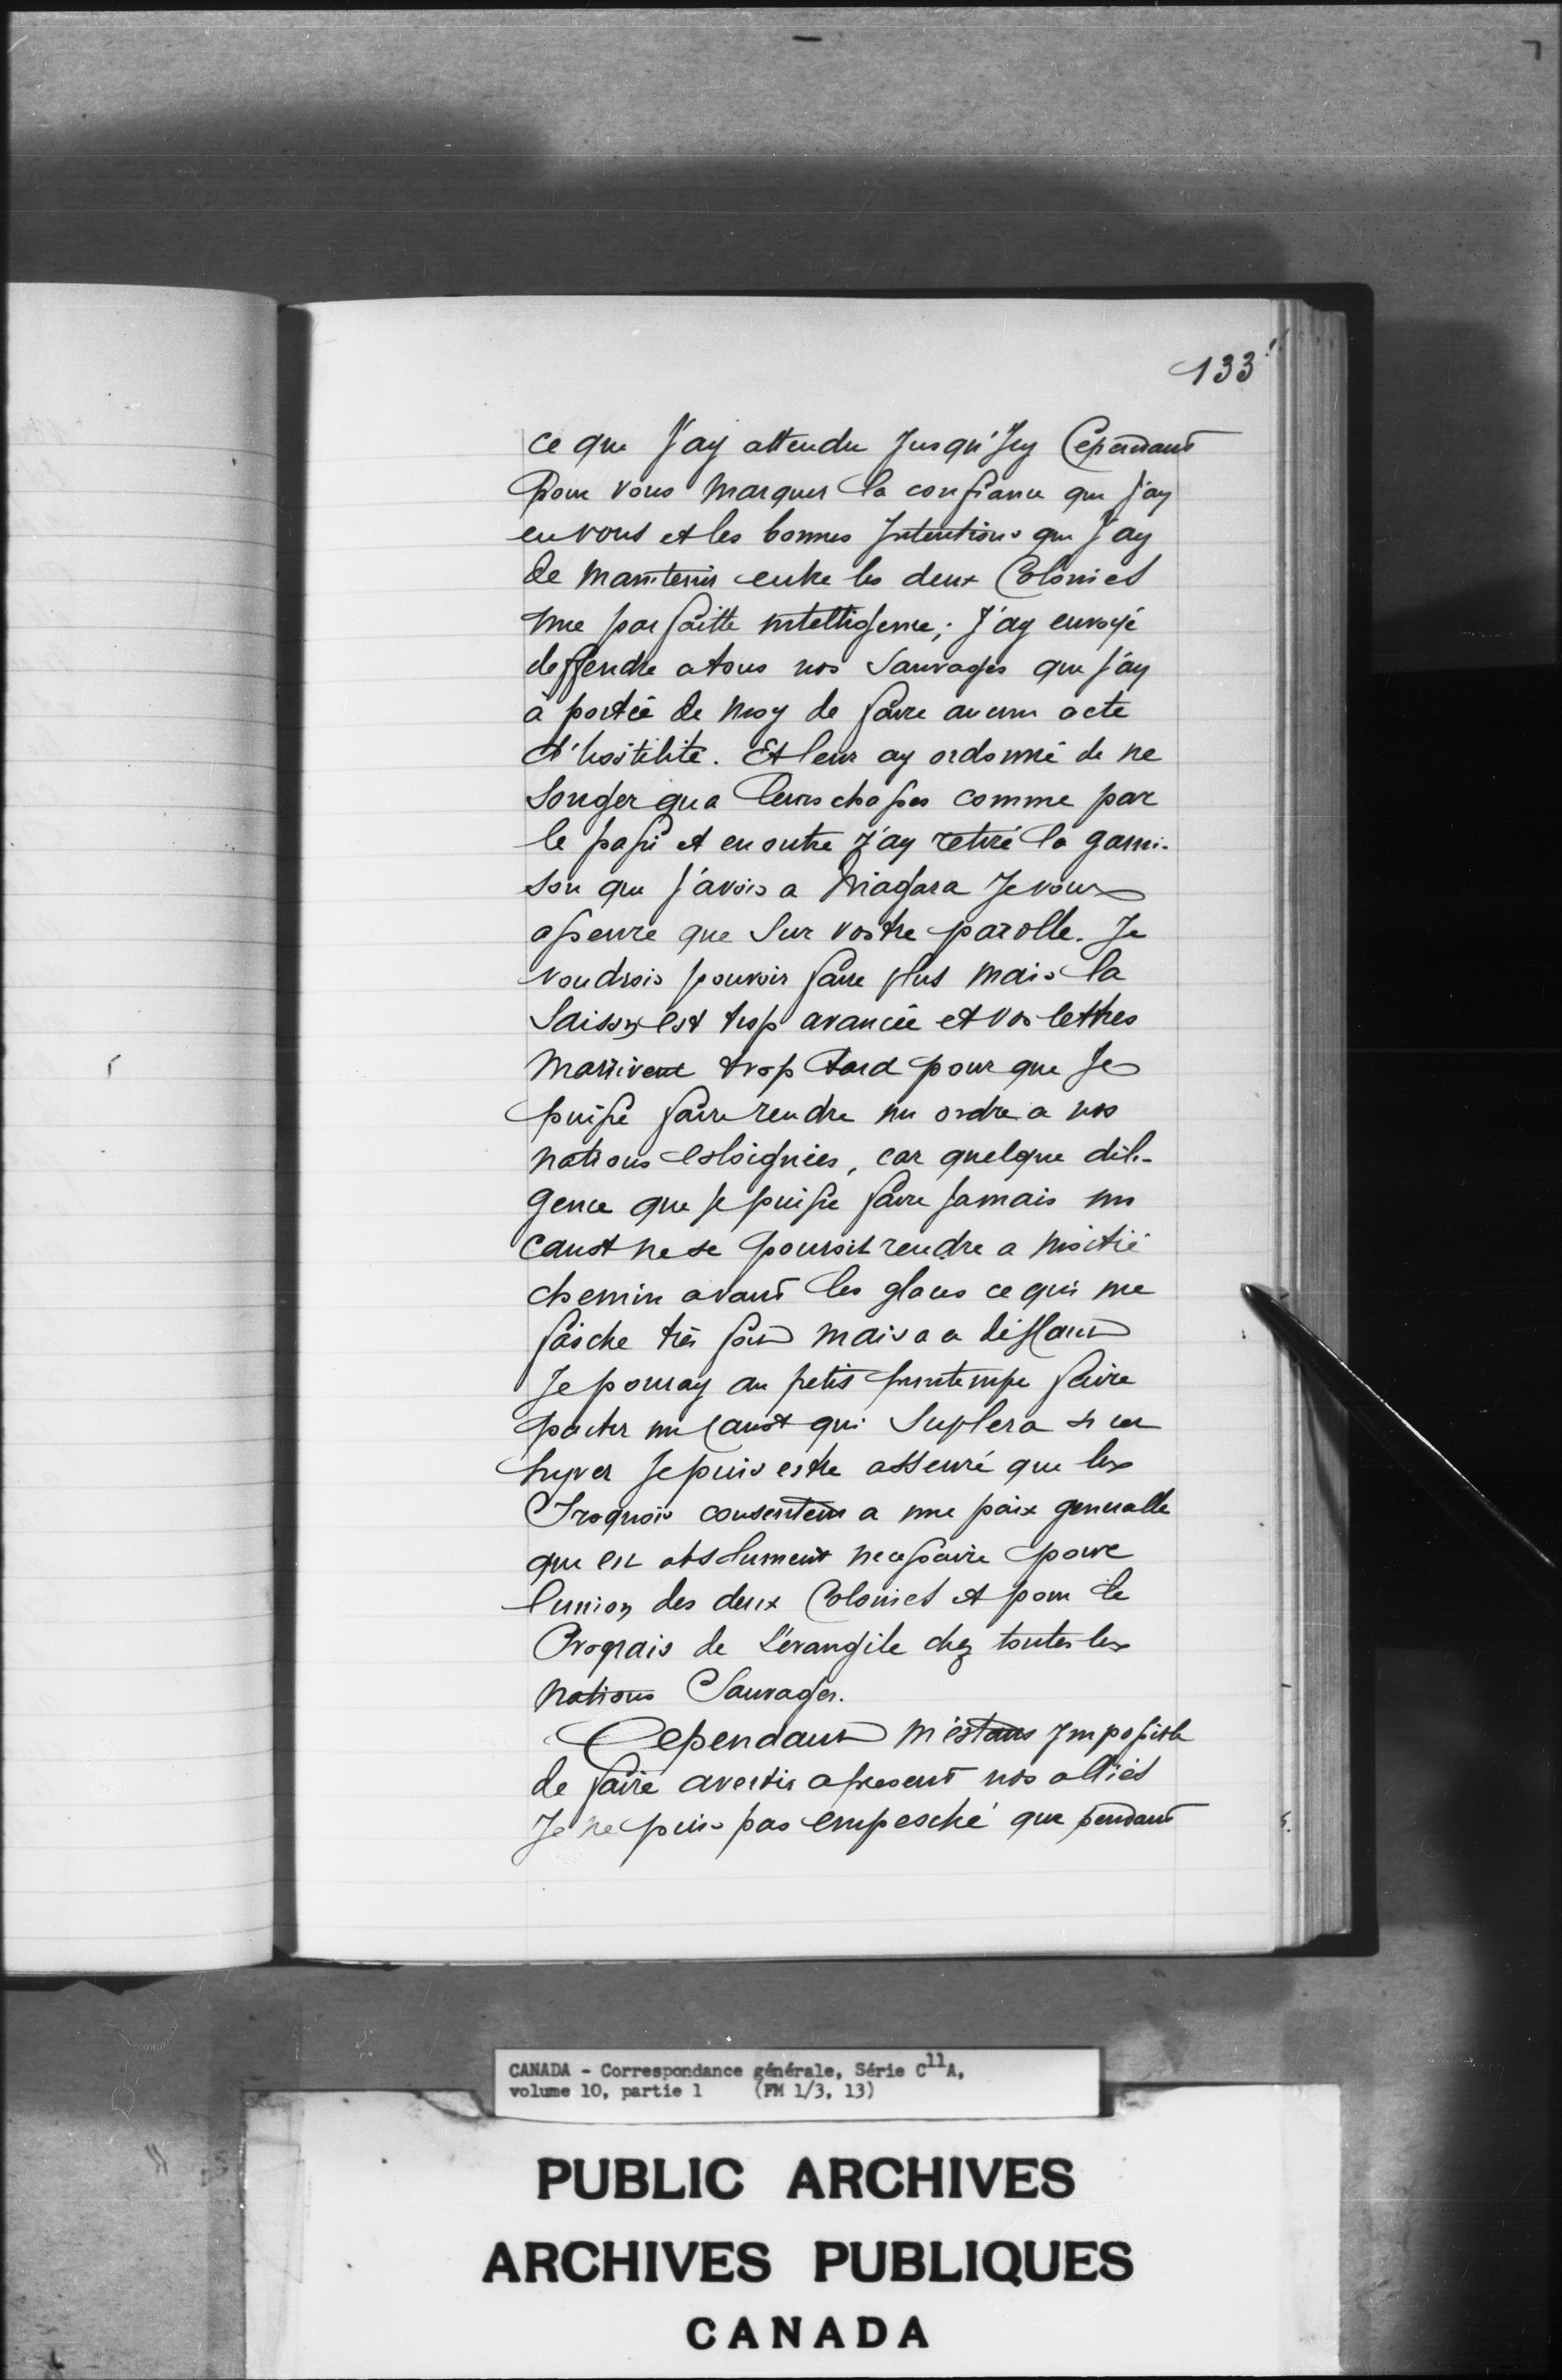 133
ce que J'ay attendu Jusqu'Icy Cependant
Pour vous marquer la confiance que j'ay
en vous et les bonnes Intentions que J'ay
de maintenir entre les deux Colonies
une parfaitte intelligence; J'ay envoyé
deffendre a tous nos Sauvages que j'ay
à portée de moy de faire aucun acte
d'hostilité. Et leur ay ordonné de ne
Songer qu a leurs chasses comme par
le passé et en outre J'ay retiré la garni-
son que j'avois a Niagara Je vous
asseure que Sur vostre parolle. Je
voudrois pouvoir faire plus mais la
Saison est trop avancée et vos lettres
marrivent trop tard pour que Je
puisse faire rendre un ordre a nos
nations esloignées, car quelque dili-
gence que Je puisse faire Jamais un
canot ne se pouroit rendre a moitié
chemin avant les glaces ce qui me
fasche très fort mais a a
Je pouray au petit printemps faire
partir un Canot qui Suplera si cet
hyver Je puis estre asseuré que les
Iroquois consentent a une paix generalle
que est absolument necessaire pour
l'union des deux Colonies et pour le
Prograis de L'evangile chez toutes les
nations Sauvages.
Cependant m'estant Impossible
de faire avertir apresent nos alliés
Je ne puis pas empesché que pendant
CANADA - Correspondance générale, Série C11A,
volume 10, partie 1 (FM 1/3, 13)
PUBLIC ARCHIVES
ARCHIVES PUBLIQUES
CANADA